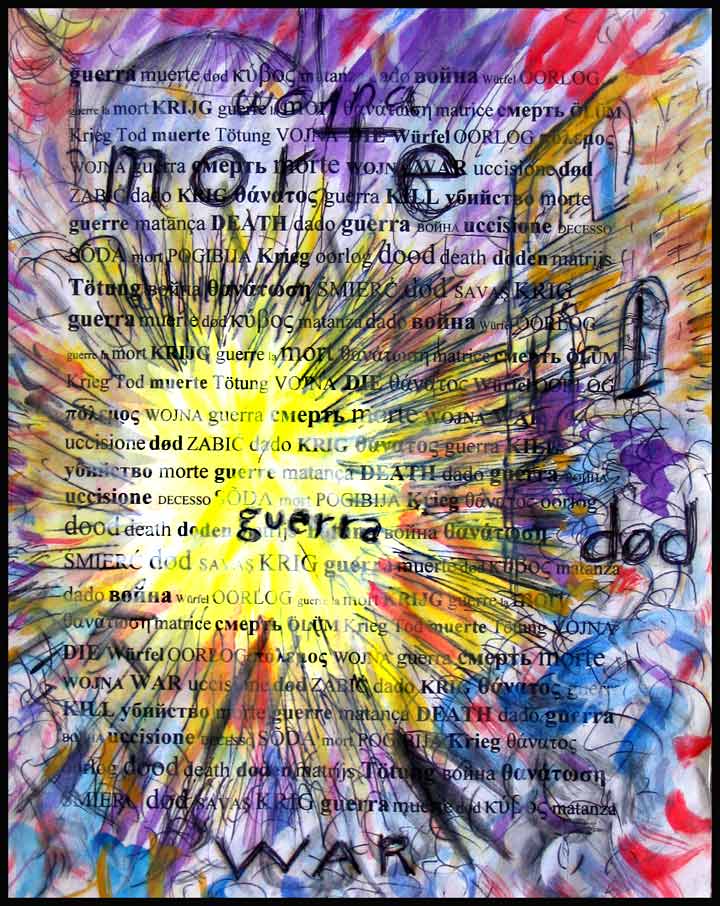 guerra muerte død κύβος dado война Würfel OORLOG
guerre la mort KRIJG guerre la mort θανάτωση matrice смерть ÖLÜM
morte
Krieg Tod muerte Tötung VOJNA DIE Würfel OORLOG πόλεμος
WOJNA guerra смерть morte WOJNA WAR uccisione død
ZABIĆ dado KRIG θάνατος guerra KILL убийство morte
guerre matança DEATH dado guerra ВОЙНА uccisione DECESSO
SÖDA mort POGIBIJA Krieg oorlog dood death doden matrijs
Tötung война θανάτωση ŚMIERĆ død SAVAŞ KRIG
guerra muerte død κύβος matanza dado война Würfel OORLOG
guerre la mort KRIJG guerre la mort θανάτωση matrice смерть ÖLÜM
Krieg Tod muerte Tötung VOJNA DIE θάνατος Würfel OORLOG
πόλεμος WOJNA guerra смерть morte WOJNA WAR
uccisione død ZABIĆ dado KRIG θάνατος guerra KILL
убийство morte guerre matança DEATH dado guerra ВОЙНА
uccisione DECESSO SÖDA mort POGIBIJA Krieg θάνατος oorlog
dood death doden matrijs война θανάτωση
guerra
død
ŚMIERĆ død SAVAŞ KRIG guerra muerte død κύβος matanza
dado война Würfel OORLOG guerre la mort KRIJG guerre la mort
θανάτωση matrice смерть ÖLÜM Krieg Tod muerte Tötung VOJNA
DIE Würfel OORLOG πόλεμος WOJNA guerra смерть morte
WOJNA WAR uccisione død ZABIĆ dado KRIG θάνατος guerra
KILL убийство morte guerre matança DEATH dado guerra
ВОЙНА uccisione DECESSO SÖDA mort POGIBIJA Krieg θάνατος
oorlog dood death doden matrijs Tötung война θανάτωση
ŚMIERĆ død SAVAŞ KRIG guerra muerte død κύβος matanza
WAR